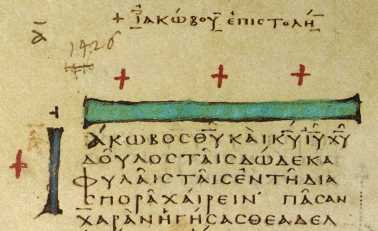 + ἸΑΚΏΒΟΥ ἘΠΙΣΤΟΛΉ
1426
ἸΆΚΩΒΟΣ Θ͞Υ ΚΑῚ Κ͞Υ Ι͞Υ Χ͞Υ
ΔΟΥΛΟΣ ΤΑῖΣ ΔΏΔΕΚΑ
ΦΥΛΑῖΣ ΤΑῖΣ ἘΝ ΤΗ͂ ΔΙΑ
ΣΠΟΡᾶ ΧΑΊΡΕΙΝ· ΠᾶΣΑΝ
ΧΑΡᾺΝ ἩΓΉΣΑΣΘΕ ἈΔΕΛ